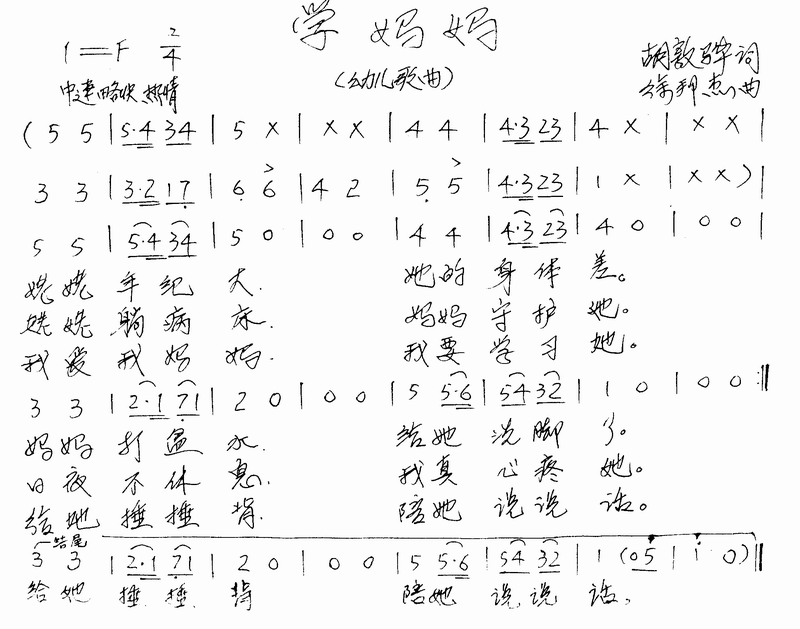 学妈妈
1=F 2/4
(幼儿歌曲)
胡敦骅 词
中速略快 热情
徐邦杰 曲
( 5 5 | 5·4 34 | 5 X | X X | 4 4 | 4·3 23 | 4 X | X X |
3 3 | 3·2 17 | 6 6 | 4 2 | 5 5 | 4·3 23 | 1 X | X X ) |
5 5 | 5·4 34 | 5 0 | 0 0 | 4 4 | 4·3 23 | 4 0 | 0 0 |
姥姥 年纪 大. 她的 身体 差。
姥姥 躺病 床. 妈妈 守护 她。
我爱 我妈 妈. 我要 学习 她。
3 3 | 2·1 71 | 2 0 | 0 0 | 5 5·6 | 54 32 | 1 0 | 0 0 :||
妈妈 打盆 水. 给她 洗脚 了。
日夜 不休 息. 我真 心疼 她。
给她 捶捶 背. 陪她 说说 话。
结尾
3 3 | 2·1 71 | 2 0 | 0 0 | 5 5·6 | 54 32 | 1 (05 | i 0) ||
给她 捶捶 背 陪她 说说 话。